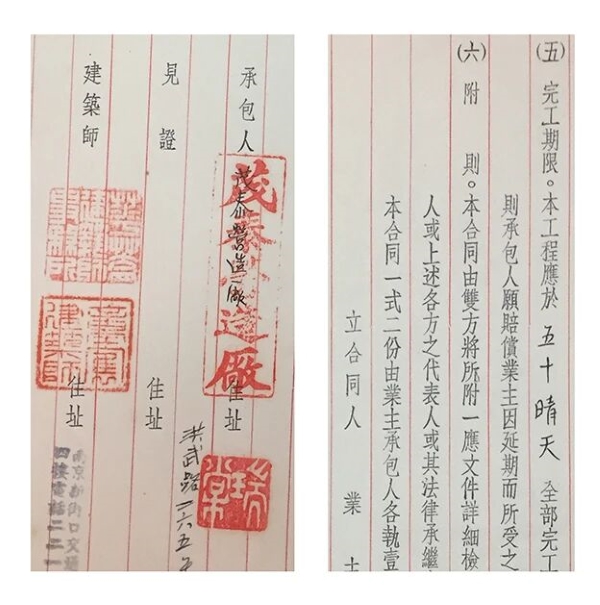 (五) 完工期限。本工程應於 五十晴天 全部完工
則承包人願賠償業主因延期而所受之
(六) 附 則。本合同由雙方將所附一應文件詳細檢
人或上述各方之代表人或其法律承繼
本合同一式二份由業主承包人各執壹
立合同人 業主
承包人 茂泰營造廠 住址
茂泰營造廠
洪武路一六五
見證 住址
建築師 住址
童寯建築師
南京新街口交通
四樓電話二二一